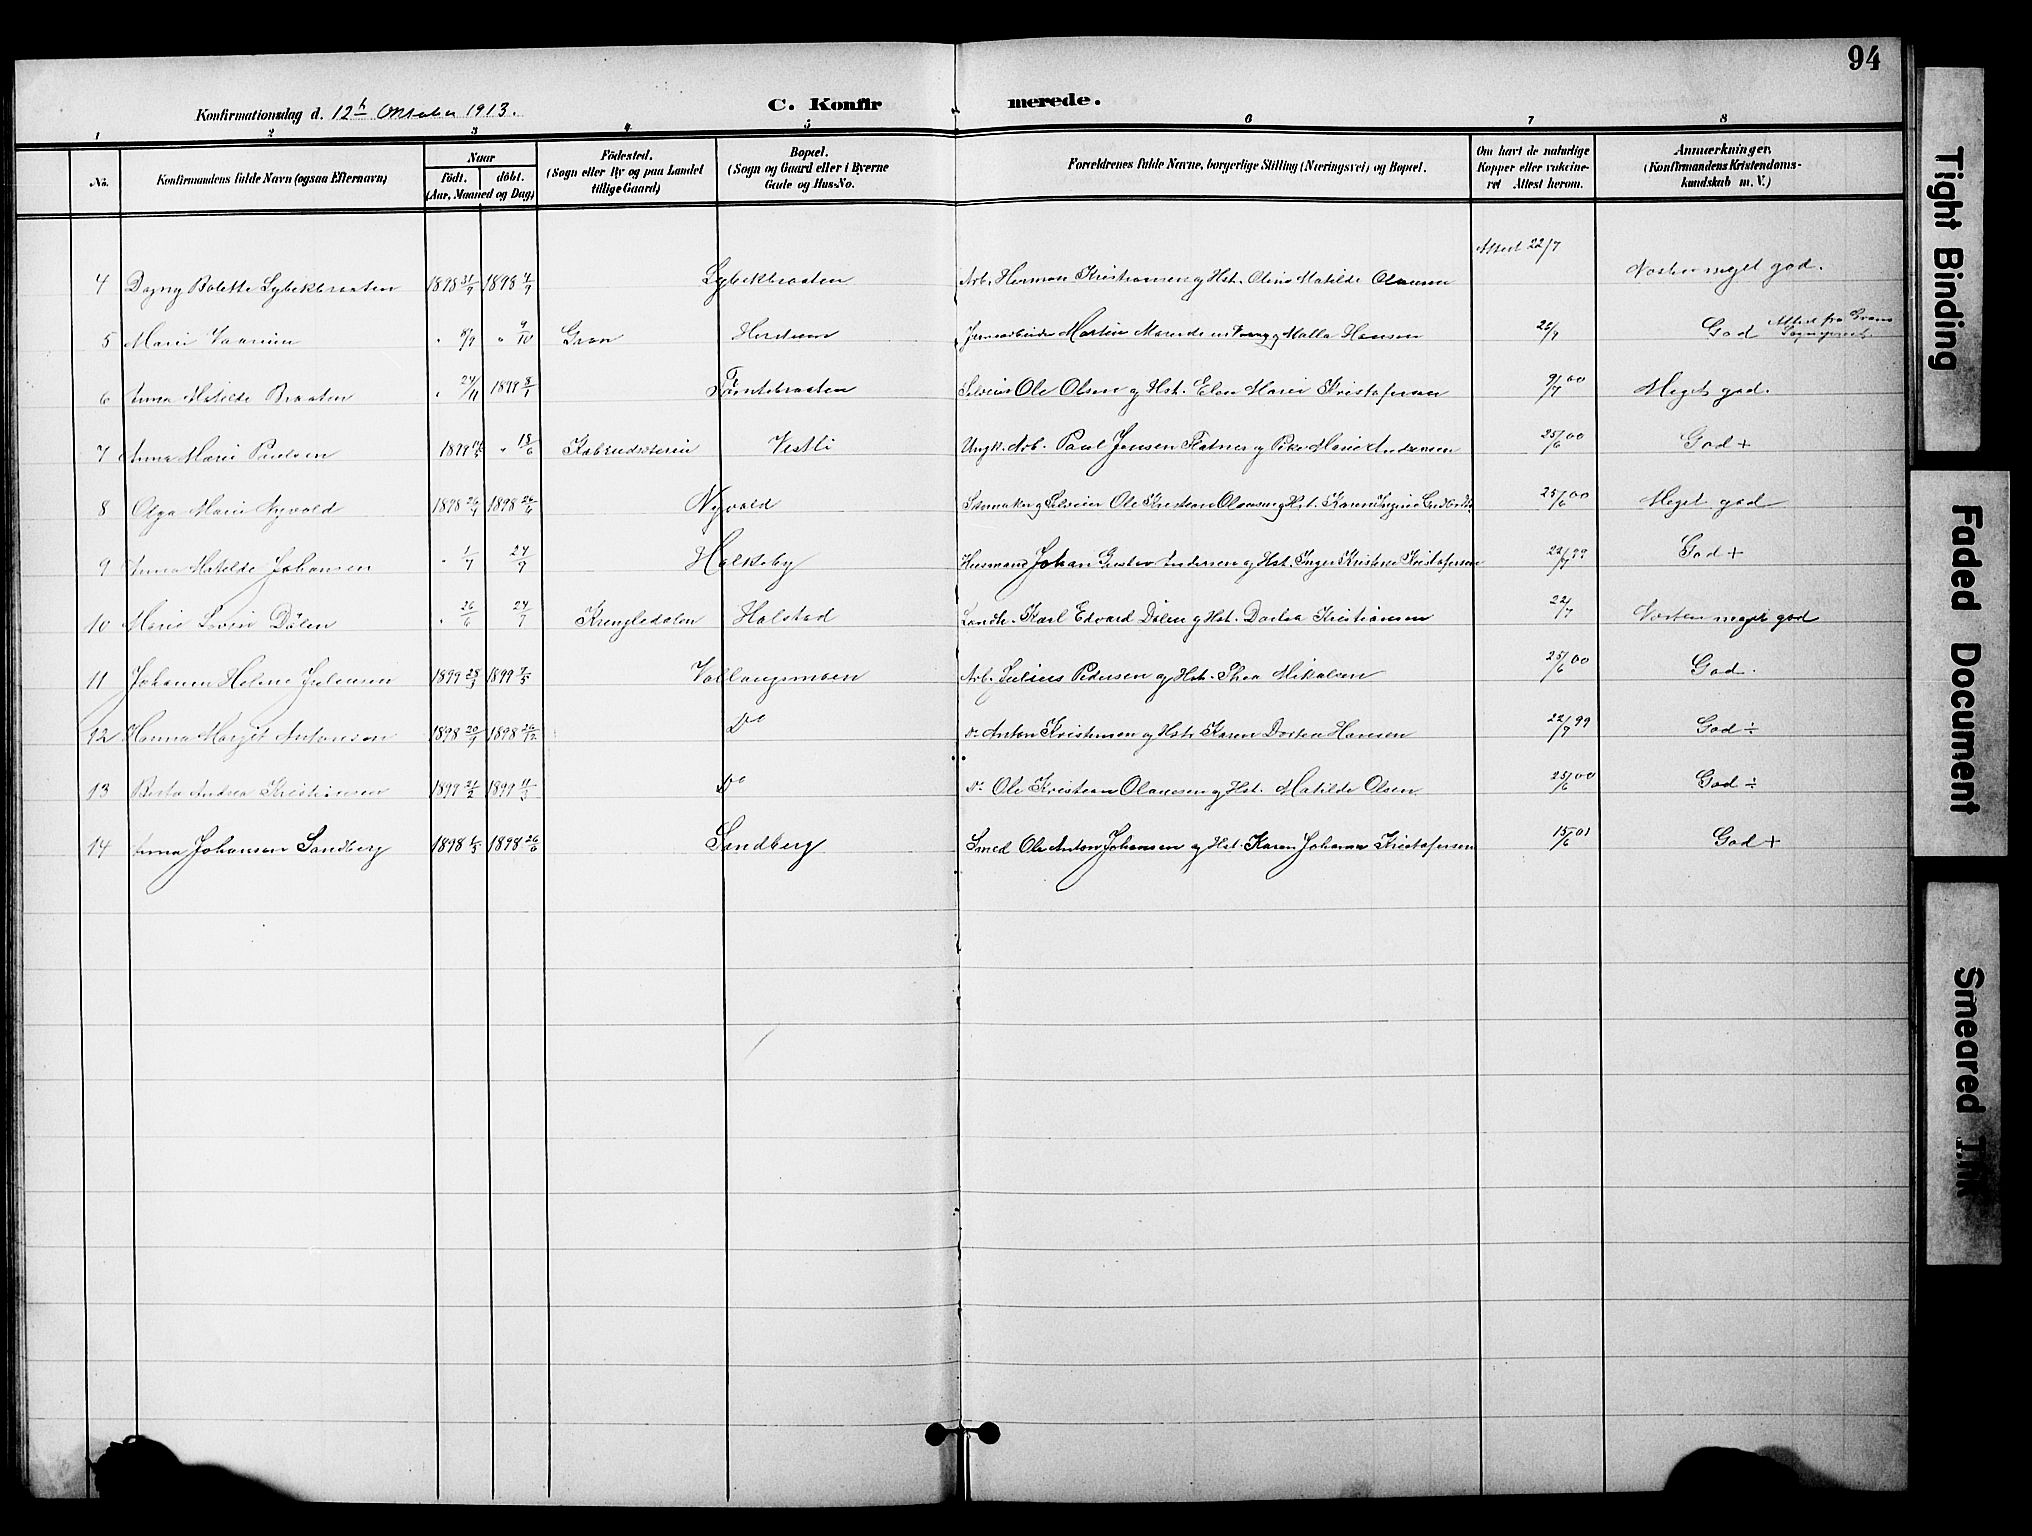 94
Konfirmationsdag d. 12te Oktober 1913.
C. Konfirmerede.
1 2 3 4 5 6 7 8
No. Konfirmandens fulde Navn (ogsaa Efternavn) Naar födt. döbt. (Aar, Maaned og Dag) Födested. (Sogn eller By og paa Landet tillige Gaard) Bopæl. (Sogn og Gaard eller i Byerne Gade og Hus-No. Forældrenes fulde Navne, borgerlige Stilling (Næringsvei) og Bopæl. Om havt de naturlige Kopper eller vakcineret Attest herom. Anmærkninger. (Konfirmandens Kristendomskundskab m. V.)
Attest 22/7
4 Dagny Bolette Lybekbraaten 1898 1898 Lybekbraaten Arb. Herman Kristiansen og Hst. Oline Matilde Olausen Næsten meget god.
5 Marie " " 9/10 Gran Martin og Malla Hansen 26/9 God Attest fra Grans Sogneprest
6 Anna Matilde Braaten " 24/11 1899 8/1 Töntebraaten Selveier Ole Olsen og Hst. Elen Marie Kristofersen 9/7 00 Meget god.
7 Anna Marie Paulsen 1899 " 18/6 Vestli Ungk. Arb. Paul Jensen og Pike Marie Andersen 25/6 00 God +
8 Olga Marie Nyvold 1898 1898 26/6 Nyvold Skomaker og Selveier Ole Kristian Olausen og Hst. Karen 25/6 00 Meget god
9 Anna Matilde Johansen " 1/7 24/7 Holkeby Husmand Johan Gustav Andersen og Hst. Inger Kristine Kristofersen 22/7 99 God +
10 Marie Lovise Dölen " 26/6 24/7 Krengledalen Halstad Landh. Karl Edvard Dölen og Hst. Dortea Kristiansen 22/7 Næsten meget god
11 Johanne Helene Juliussen 1899 25/3 1899 7/5 Vollaugsmoen Arb. Julius Pedersen og Hst. Thea Mikalsen 25/6 00 God.
12 Hanna Margit Antonsen 1898 20/9 1898 26/12 Do Do Anton Kristiansen og Hst. Karen Dortea Hansen 22/9 99 God ÷
13 Berta Andrea Kristiansen 1899 21/2 1899 Do Do Ole Kristian Olausen og Hst. Matilde Olsen 25/6 00 God ÷
14 Anna Johansen Sandberg 1898 1898 26/6 Sandberg Smed Ole Anton Johansen og Hst. Karen Johanne Kristofersen 15/6 01 God +
Tight Binding
Faded Document
Smeared Ink